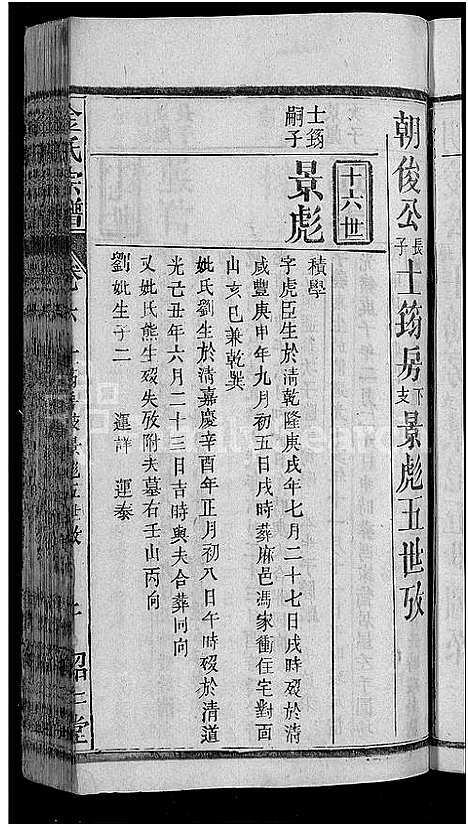 朝俊公長子士筠房下支景彪五世攷
十六世
士筠嗣子
景彪
積學
字虎臣生於清乾隆庚戌年七月二十七日戌時歿於清
咸豐庚申年九月初五日戌時葬麻邑馮家衝住宅對面
山亥巳兼乾巽
妣氏劉生於清嘉慶辛酉年正月初八日午時歿於清道
光己丑年六月二十三日吉時與夫合葬同向
又妣氏熊生歿失攷附夫墓右壬山丙向
劉妣生子二 運詳 運泰
金氏宗譜 卷六 景彪五世攷